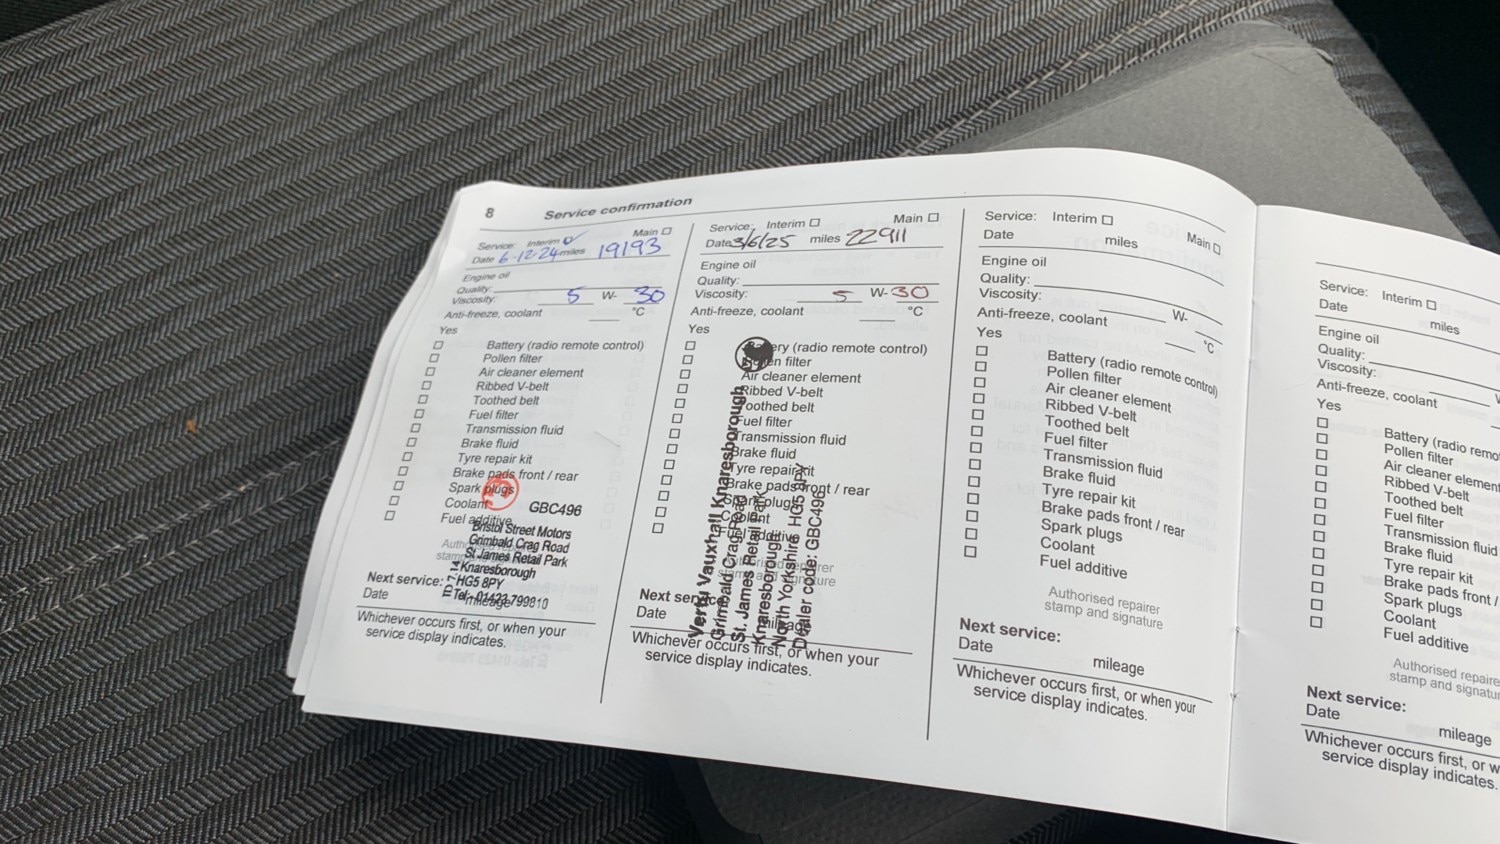 8 Service confirmation
Service: Interim ☑ Main ☐
Date 6-12-24 miles 19193
Engine oil
Quality:
Viscosity: 5 W- 30
Anti-freeze, coolant °C
Yes
☐ Battery (radio remote control)
☐ Pollen filter
☐ Air cleaner element
☐ Ribbed V-belt
☐ Toothed belt
☐ Fuel filter
☐ Transmission fluid
☐ Brake fluid
☐ Tyre repair kit
☐ Brake pads front / rear
☐ Spark plugs
☐ Coolant
☐ Fuel additive
GBC496
Bristol Street Motors
Grimbald Crag Road
St James Retail Park
Knaresborough
HG5 8PY
Tel: 01423 799810
Next service:
Date mileage
Whichever occurs first, or when your
service display indicates.
Service: Interim ☐ Main ☐
Date 3/6/25 miles 22911
Engine oil
Quality:
Viscosity: 5 W- 30
Anti-freeze, coolant °C
Yes
☐ Battery (radio remote control)
☐ Pollen filter
☐ Air cleaner element
☐ Ribbed V-belt
☐ Toothed belt
☐ Fuel filter
☐ Transmission fluid
☐ Brake fluid
☐ Tyre repair kit
☐ Brake pads front / rear
☐ Spark plugs
☐ Coolant
☐ Fuel additive
Authorised repairer
stamp and signature
Vertu Vauxhall Knaresborough
Grimbald Crag Road
St. James Retail Park
Knaresborough
North Yorkshire HG5 8PY
Dealer code: GBC496
Next service:
Date mileage
Whichever occurs first, or when your
service display indicates.
Service: Interim ☐ Main ☐
Date miles
Engine oil
Quality:
Viscosity: W-
Anti-freeze, coolant °C
Yes
☐ Battery (radio remote control)
☐ Pollen filter
☐ Air cleaner element
☐ Ribbed V-belt
☐ Toothed belt
☐ Fuel filter
☐ Transmission fluid
☐ Brake fluid
☐ Tyre repair kit
☐ Brake pads front / rear
☐ Spark plugs
☐ Coolant
☐ Fuel additive
Authorised repairer
stamp and signature
Next service:
Date mileage
Whichever occurs first, or when your
service display indicates.
Service: Interim ☐
Date miles
Engine oil
Quality:
Viscosity:
Anti-freeze, coolant
Yes
☐ Battery (radio
☐ Pollen filter
☐ Air cleaner element
☐ Ribbed V-belt
☐ Toothed belt
☐ Fuel filter
☐ Transmission fluid
☐ Brake fluid
☐ Tyre repair kit
☐ Brake pads front /
☐ Spark plugs
☐ Coolant
☐ Fuel additive
Authorised
stamp and
Next service:
Date mileage
Whichever occurs first, or
service display indicates.